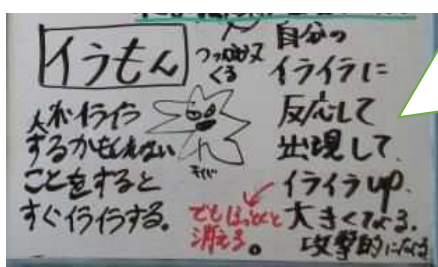 イラもん
人がイライラ
するかもしれない
ことをすると
すぐイライラする。
くる
自分の
イライラに
反応して
出現して、
イライラup.
大きくなる.
攻撃的になる
でもほっとくと
消える。